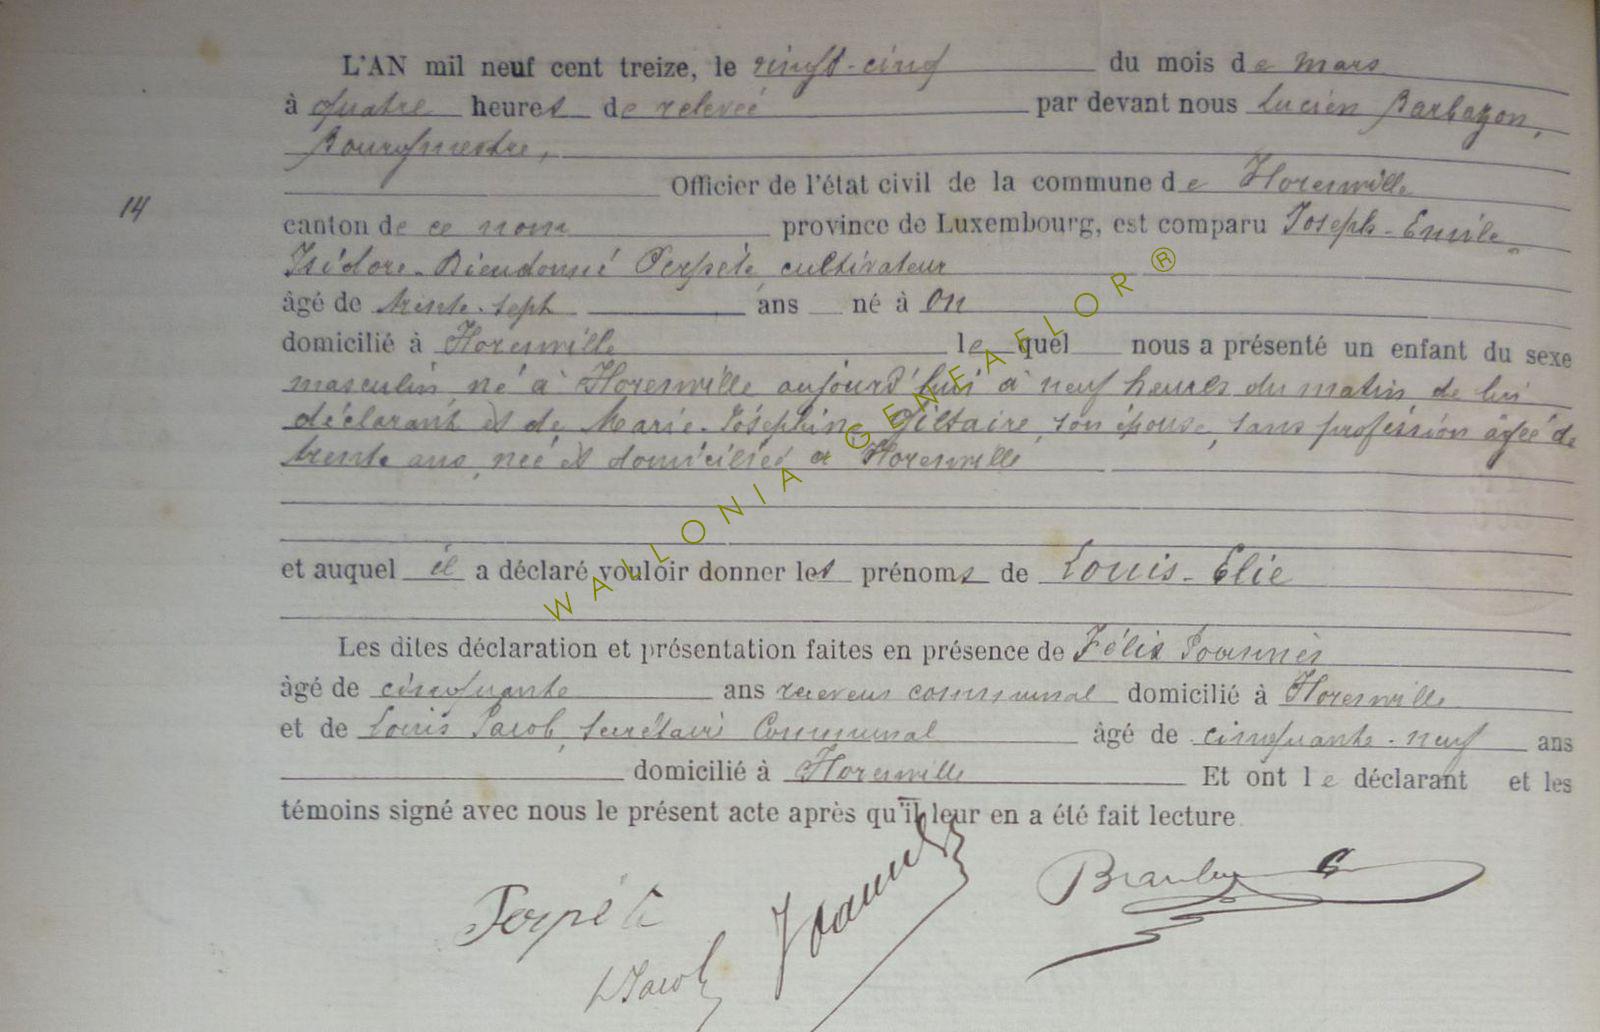 L'AN mil neuf cent treize, le vingt-cinq du mois de mars
à quatre heures de relevée par devant nous Lucien Barbazon,
Bourgmestre,
Officier de l'état civil de la commune de Florenville
14
canton de ce nom province de Luxembourg, est comparu Joseph-Emile-
Isidore-Dieudonné Perpète, cultivateur
âgé de trente-sept ans né à On
domicilié à Florenville lequel nous a présenté un enfant du sexe
masculin né à Florenville aujourd'hui à neuf heures du matin de lui
déclarant et de Marie-Joséphine Giltaire, son épouse, sans profession âgée de
trente ans, née et domiciliée à Florenville
et auquel il a déclaré vouloir donner les prénoms de Louis-Elie
Les dites déclaration et présentation faites en présence de Félix Joannès
âgé de cinquante ans receveur communal domicilié à Florenville
et de Louis Jacob, Secrétaire Communal âgé de cinquante-neuf ans
domicilié à Florenville Et ont le déclarant et les
témoins signé avec nous le présent acte après qu'il leur en a été fait lecture.
Perpète
LJacob
Joannès
WALLONIA GENEAFLOR ®